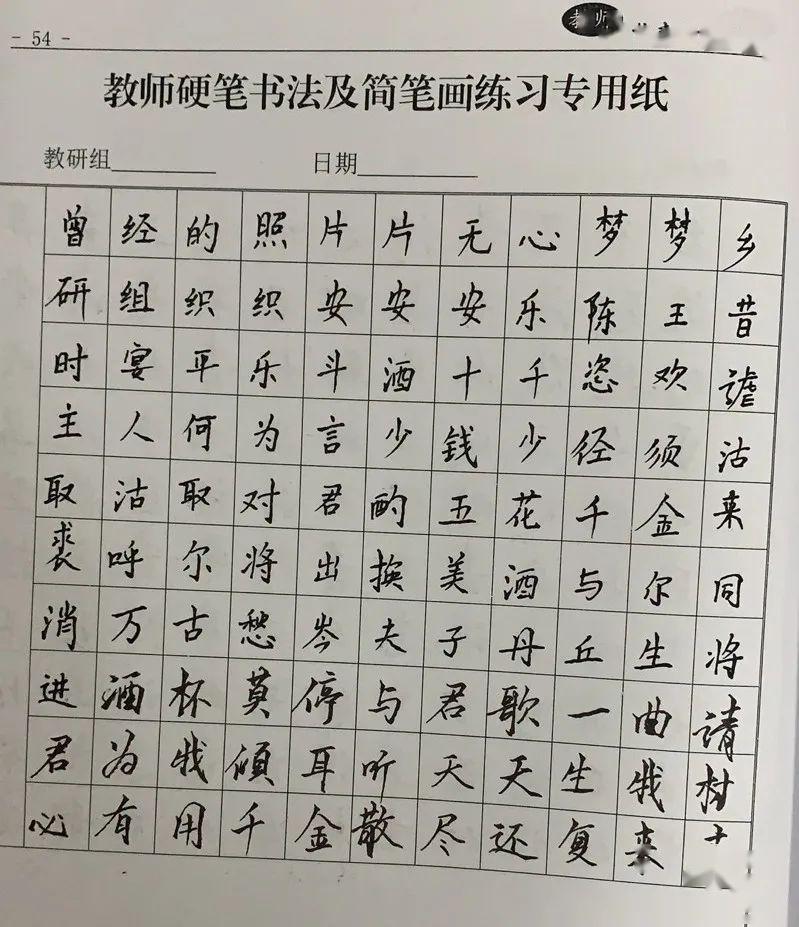 - 54 -
教师硬笔书法及简笔画练习专用纸
教研组________ 日期________
曾经的照片片无心梦梦乡
研组织织安安安乐陈王昔
时宴平乐斗酒十千恣欢谑
主人何为言少钱少径须沽
取沽取对君酌五花千金来
裘呼尔将出换美酒与尔同
消万古愁岑夫子丹丘生将
进酒杯莫停与君歌一曲请
君为我倾耳听天天生我材
必有用千金散尽还复来